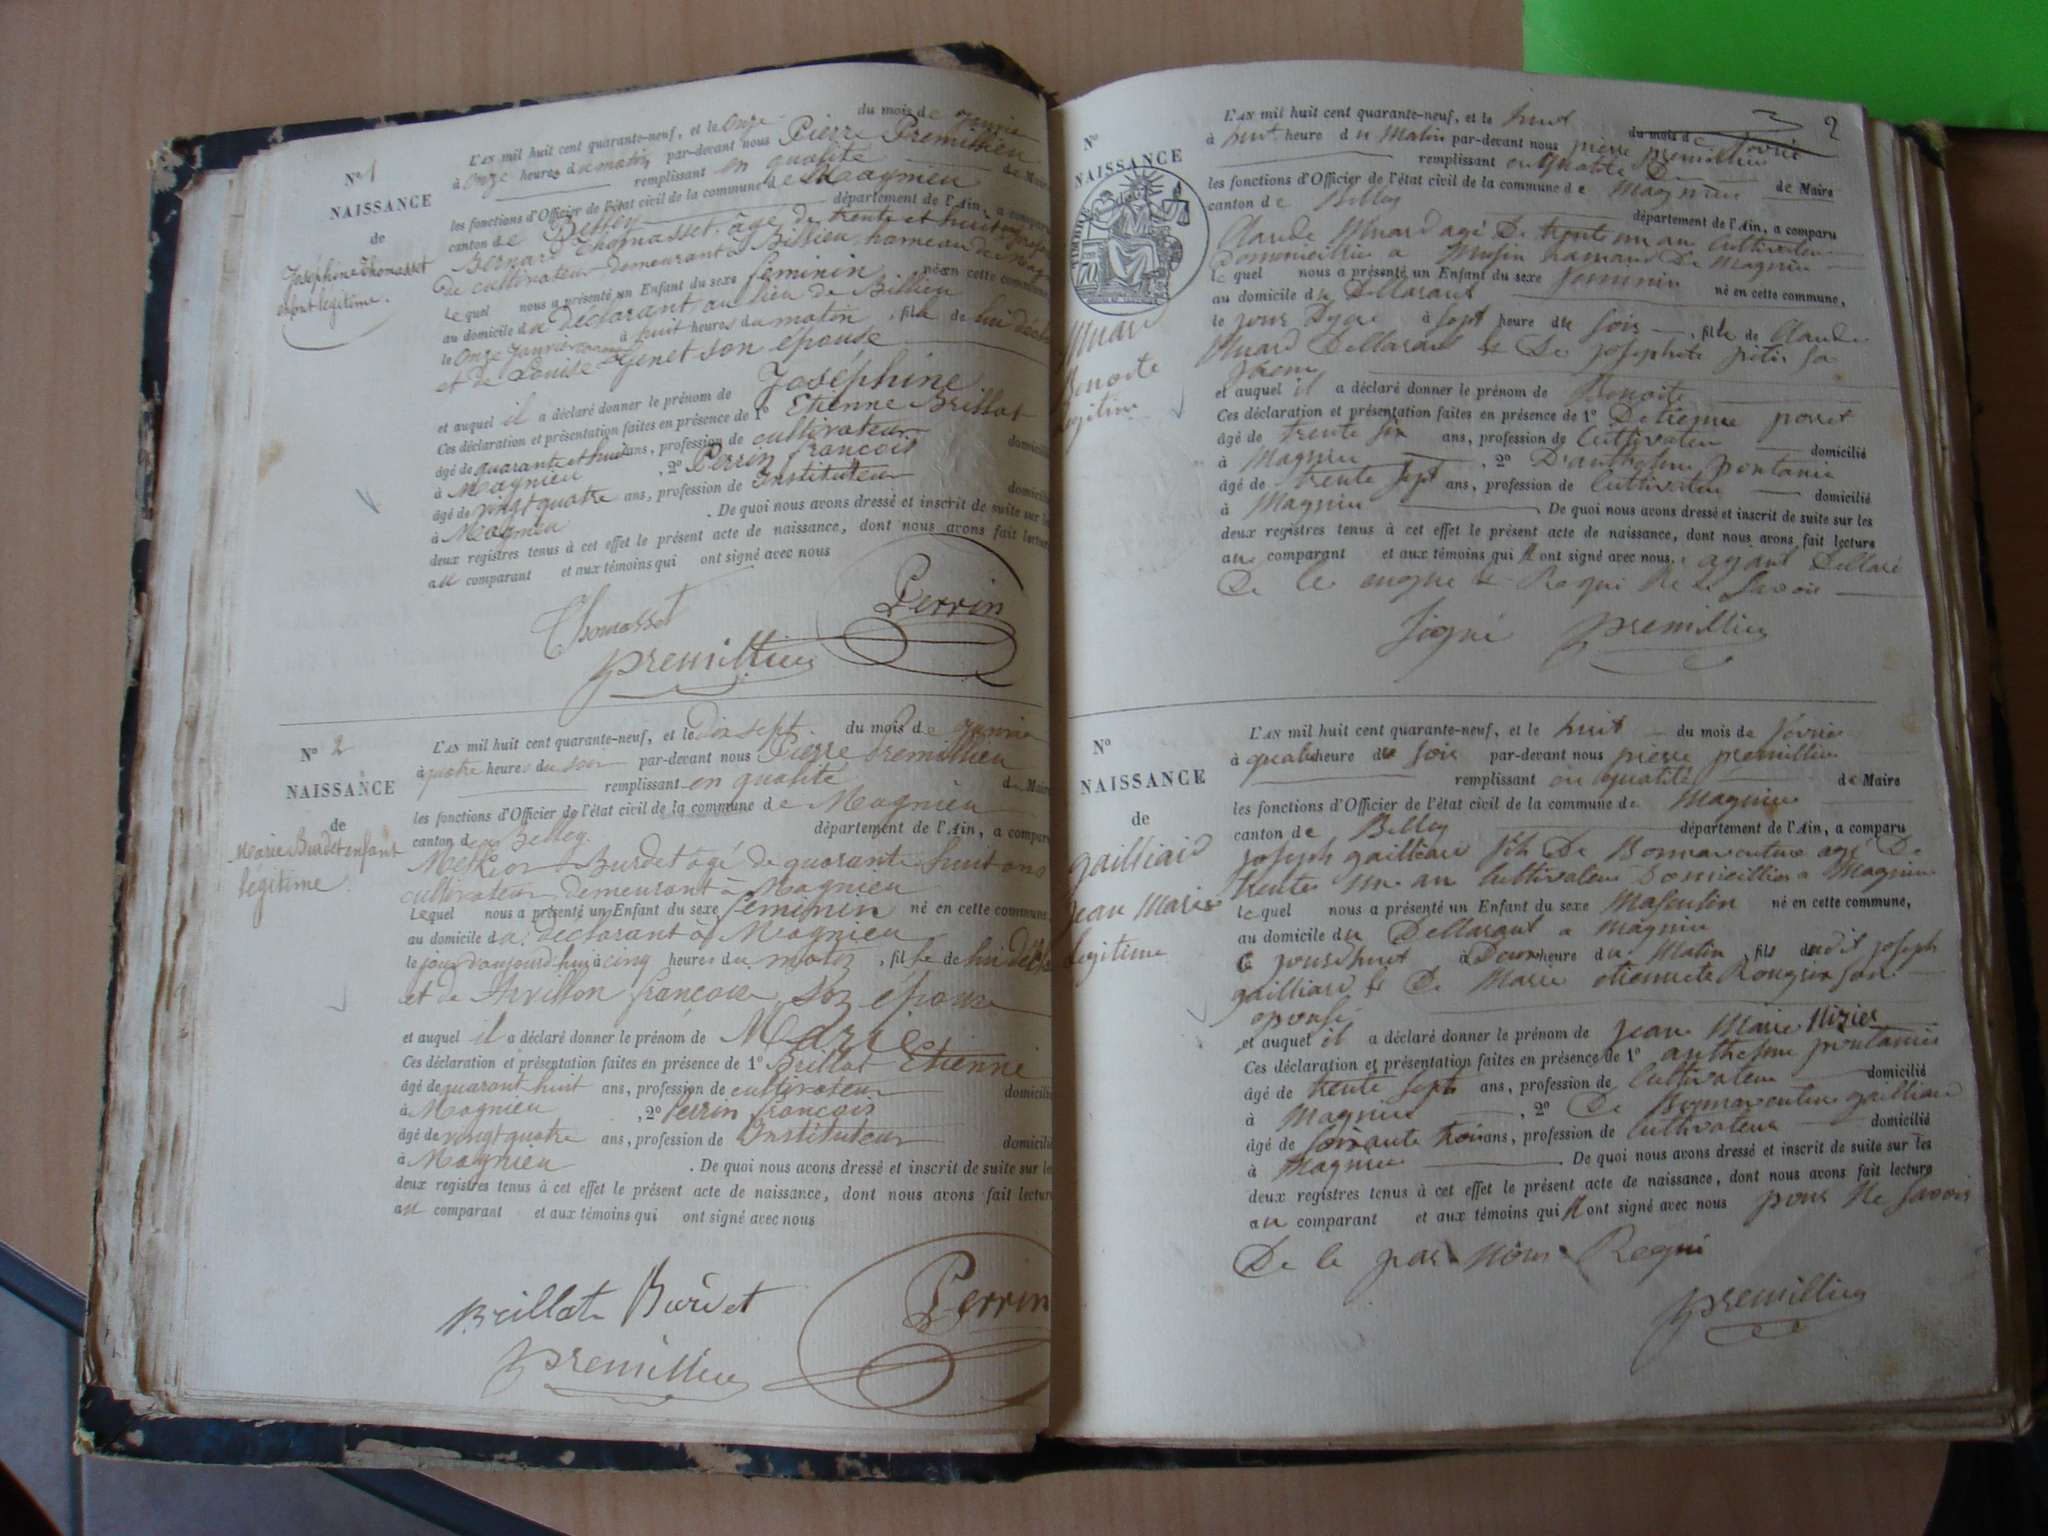 N° 1
NAISSANCE
de
Joséphine Thomasset
enfant légitime.
L'AN mil huit cent quarante-neuf, et le Onze du mois de
à Onze heures du matin, par-devant nous Pierre Premillieu
remplissant en qualité de Maire
les fonctions d'Officier de l'état civil de la commune de Magnieu
canton de Belley département de l'Ain, a comparu
Bernard Thomasset, âgé de trente et huit
de cultivateur demeurant à Billieu hameau de
Lequel nous a présenté un Enfant du sexe féminin né en cette commune,
au domicile du déclarant au lieu de Billieu
le Onze Janvier à huit heures du matin, fille de lui
et de Louise Genet son épouse
et auquel il a déclaré donner le prénom de Joséphine
Ces déclaration et présentation faites en présence de 1° Etienne Brillat
âgé de quarante et huit ans, profession de cultivateur domicilié
à Magnieu, 2° Perrin françois
âgé de vingt quatre ans, profession de Instituteur domicilié
à Magnieu. De quoi nous avons dressé et inscrit de suite sur les
deux registres tenus à cet effet le présent acte de naissance, dont nous avons fait lecture
au comparant et aux témoins qui ont signé avec nous
Thomasset Perrin
premillieu
N° 2
NAISSANCE
de
Marie Burdet enfant
légitime.
L'AN mil huit cent quarante-neuf, et le dix sept du mois de
à quatre heures du soir par-devant nous Pierre Premillieu
remplissant en qualité de Maire
les fonctions d'Officier de l'état civil de la commune de Magnieu
canton de Belley département de l'Ain, a comparu
Burdet agé de quarante huit ans
cultivateur demeurant à Magnieu
Lequel nous a présenté un Enfant du sexe féminin né en cette commune,
au domicile du déclarant à Magnieu
le jour d'aujourd'hui à cinq heures du matin, fille de lui
et de françoise son épouse
et auquel il a déclaré donner le prénom de Marie
Ces déclaration et présentation faites en présence de 1° Brillat Etienne
âgé de quarant huit ans, profession de cultivateur domicilié
à Magnieu, 2° Perrin françois
âgé de vingt quatre ans, profession de Instituteur domicilié
à Magnieu. De quoi nous avons dressé et inscrit de suite sur les
deux registres tenus à cet effet le présent acte de naissance, dont nous avons fait lecture
au comparant et aux témoins qui ont signé avec nous
Brillat Burdet Perrin
premillieu
2
N°
NAISSANCE
Benoite
légitime
L'AN mil huit cent quarante-neuf, et le huit du mois de
à huit heure du Matin par-devant nous pierre premillieu
remplissant en qualité de Maire
les fonctions d'Officier de l'état civil de la commune de Magnieu
canton de Belley département de l'Ain, a comparu
Claude agé De trente un an Cultivateur
a Musin hamaud De Magnieu
le quel nous a présenté un Enfant du sexe feminin né en cette commune,
au domicile du Dellarant
le jour à sept heure du soir, fille de Claude
Dellarant & De josephite
et auquel il a déclaré donner le prénom de Benoite
Ces déclaration et présentation faites en présence de 1° D etienne
âgé de trente six ans, profession de Cultivateur domicilié
à Magnieu, 2° D'anthelme pontanie
âgé de trente sept ans, profession de Cultivateur domicilié
à Magnieu De quoi nous avons dressé et inscrit de suite sur les
deux registres tenus à cet effet le présent acte de naissance, dont nous avons fait lecture
au comparant et aux témoins qui n ont signé avec nous, ayant Dellaré
De le & Requi ne Savoir
signé premillieu
N°
NAISSANCE
de
gailliard
jean Marie
legitime
L'AN mil huit cent quarante-neuf, et le huit du mois de
à heure du soir par-devant nous pierre premillieu
remplissant en qualité de Maire
les fonctions d'Officier de l'état civil de la commune de Magnieu
canton de Belley département de l'Ain, a comparu
joseph gailliard fils De Bonnaventure agé De
trente un an Cultivateur Domicillier a Magnieu
le quel nous a présenté un Enfant du sexe Masculin né en cette commune,
au domicile du Dellarant a magnieu
le jours huit à heure du Matin, fils dudit joseph
gailliard & De Marie etiennete Rougin son
epouse
et auquel il a déclaré donner le prénom de jean Marie Nizier
Ces déclaration et présentation faites en présence de 1° anthelme pontanier
âgé de trente sept ans, profession de Cultivateur domicilié
à Magnieu, 2° De Bonnaventure gailliard
âgé de soixante trois ans, profession de Cultivateur domicilié
à Magnieu De quoi nous avons dressé et inscrit de suite sur les
deux registres tenus à cet effet le présent acte de naissance, dont nous avons fait lecture
au comparant et aux témoins qui n ont signé avec nous pour ne savoir
De le par nous Requi
premillieu